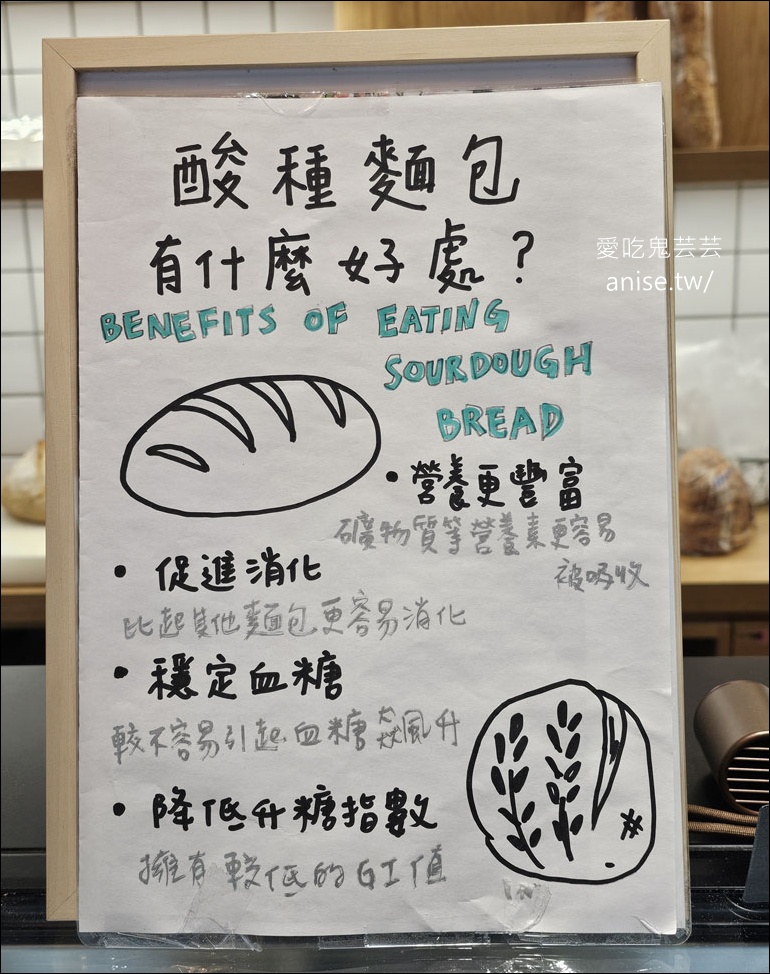 酸種麵包
有什麼好處？
愛吃鬼芸芸
anise.tw/
BENEFITS OF EATING
SOURDOUGH
BREAD
• 營養更豐富
礦物質等營養素更容易
被吸收
• 促進消化
比起其他麵包更容易消化
• 穩定血糖
較不容易引起血糖飆升
• 降低升糖指數
擁有較低的GI值